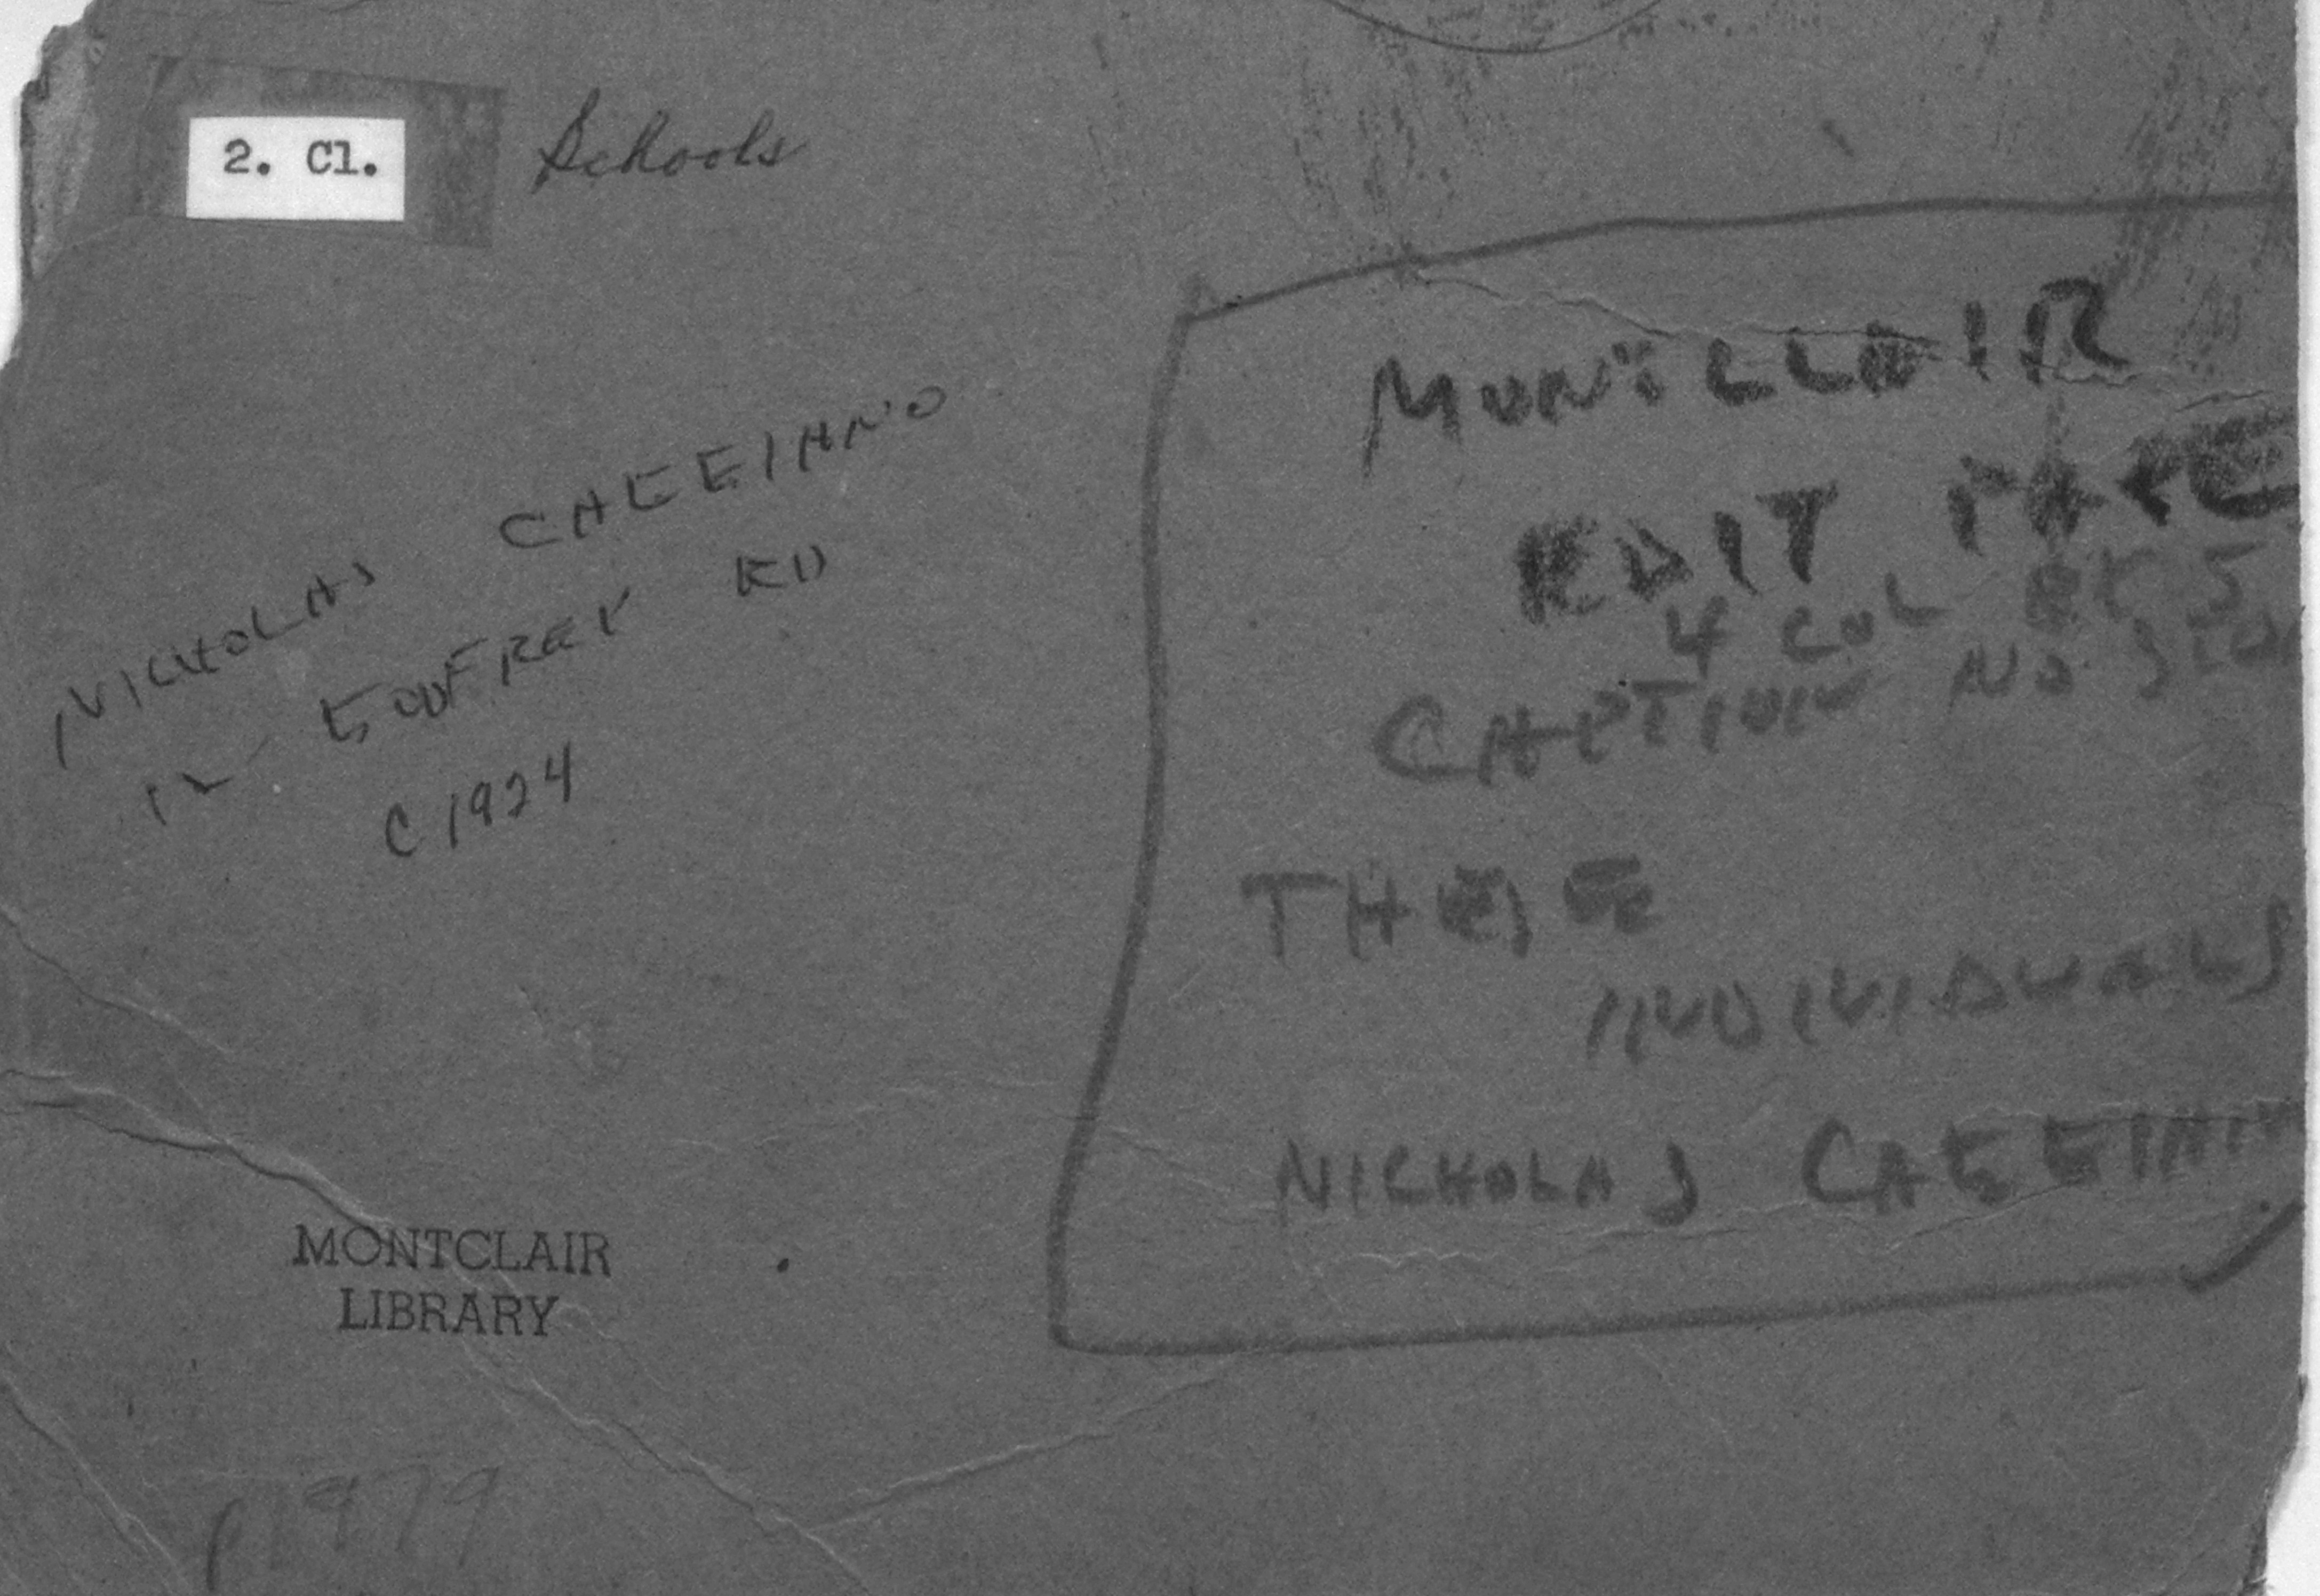 2. Cl. Schools
NICHOLAS CAGGIANO
12 GODFREY RD
C 1924
MONTCLAIR
EDIT PAGE
4 COL
CAPTION NO
THESE
INDIVIDUALS
NICHOLAS
MONTCLAIR
LIBRARY
1979